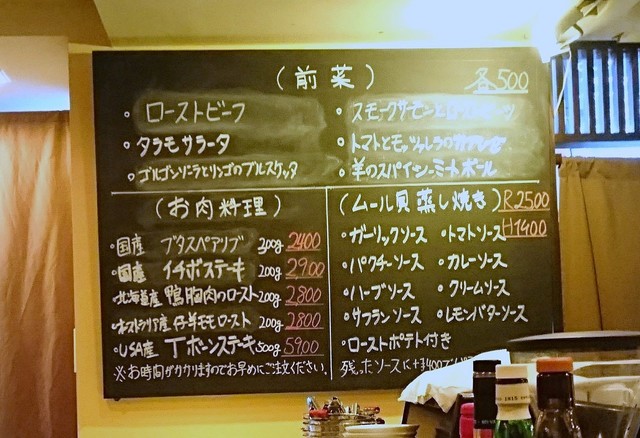 (前菜) 各500
・ローストビーフ
・タラモサラータ
・ゴルゴンゾーラとリンゴのブルスケッタ
・スモークサーモンと
・トマトとモッツァレラの
・羊のスパイシーミートボール
(お肉料理)
・国産 ブタスペアリブ 300g 2400
・国産 イチボステーキ 200g 2900
・北海道産 鴨胸肉のロースト 200g 2800
・オーストラリア産 仔羊モモロースト 200g 2800
・USA産 Tボーンステーキ 500g 5900
※お時間がかかりますのでお早めにご注文ください。
(ムール貝蒸し焼き) R2500
H1400
・ガーリックソース ・トマトソース
・パクチーソース ・カレーソース
・ハーブソース ・クリームソース
・サフランソース ・レモンバターソース
・ローストポテト付き
残ったソースに+¥400で